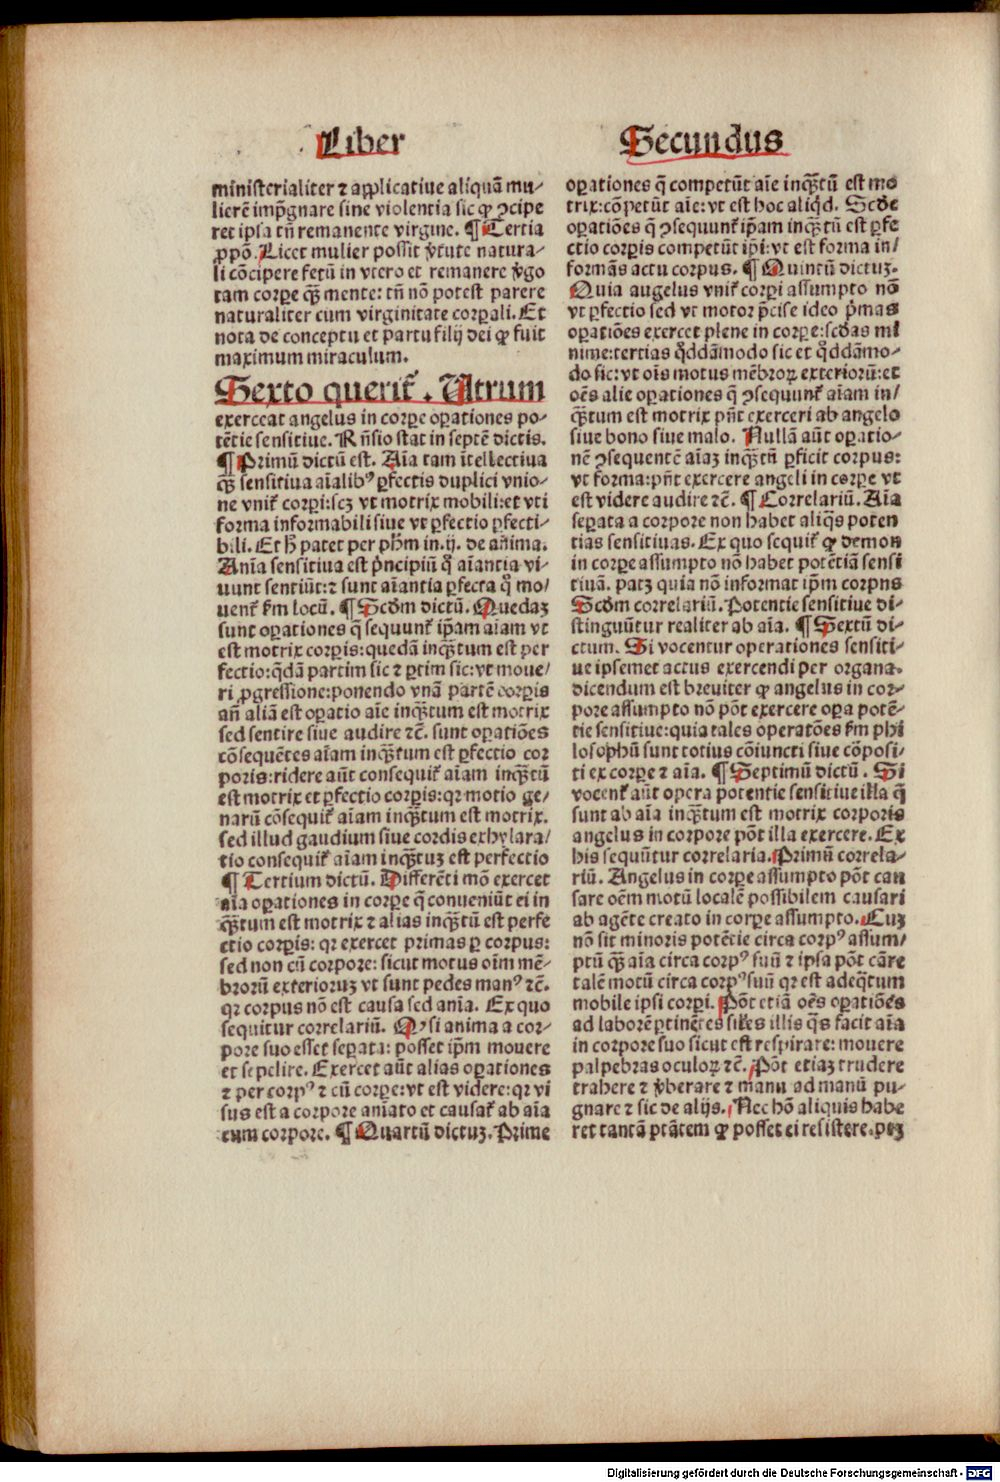 Liber Secundus
ministerialiter ⁊ applicatiue aliquā mu-
lierē imp̄gnare sine violentia sic ꝙ ↄcipe
ret ipsa tñ remanente virgine. ¶ Tertia
ꝓpō. Licet mulier possit v̄tute natura-
li cōcipere fetū in vtero et remanere v̄go
tam corꝑe qꝫ̄ mente: tñ nō potest parere
naturaliter cum virginitate corꝑali. Et
nota de conceptu et partu filij dei ꝙ fuit
maximum miraculum.
Sexto querit̄. Utrum
exerceat angelus in corꝑe oꝑationes po-
tētie sensitiue. Rñsio stat in septē dictis.
¶ Primū dictū est. Aīa tam ītellectiua
qꝫ̄ sensitiua aīalibꝰ ꝑfectis duplici vnio-
ne vnit̄ corꝑi: scꝫ vt motrix mobili: et vti
forma informabili siue vt ꝑfectio ꝑfecti-
bili. Et h̄ patet per ph̄m in .ij. de anima.
Anīa sensitiua est p̄ncipiū q̊ aīantia vi-
uunt sentiūt: ⁊ sunt aīantia ꝑfecta q̊ mo-
uent̄ ẜm locū. ¶ Scd̄m dictū. Quedaꝫ
sunt oꝑationes q̄ sequunt̄ ip̄am aīam vt
est motrix corꝑis: quedā inqꝫ̄tum est per
fectio: q̄dā partim sic ⁊ ꝑtim sic: vt moue/
ri ꝓgressione: ponendo vnā partē corꝑis
añ aliā est oꝑatio aīe inqꝫ̄tum est motrix
sed sentire siue audire ⁊c̄. sunt oꝑatiōes
cōsequētes aīam inqꝫ̄tum est ꝑfectio cor
poris: ridere aūt consequit̄ aīam inqꝫ̄tū
est motrix et ꝑfectio corꝑis: qꝛ motio ge/
narū cōsequit̄ aīam inqꝫ̄tum est motrix.
sed illud gaudium siue cordis exhylara/
tio consequit̄ aīam inqꝫ̄tuꝫ est perfectio
¶ Tertium dictū. Differēti mō exercet
aīa oꝑationes in corꝑe q̄ conueniūt ei in
qꝫ̄tum est motrix ⁊ alias inqꝫ̄tū est perfe
ctio corꝑis: qꝛ exercet primas ꝑ corpus:
sed non cū corpore: sicut motus oīm mē-
brorū exterioruꝫ vt sunt pedes manꝰ ⁊c̄.
qꝛ corpus nō est causa sed anīa. Ex quo
sequitur correlariū. Qꝙ si anima a cor-
pore suo esset seꝑata: posset ip̄m mouere
et sepelire. Exercet aūt alias oꝑationes
⁊ per corpꝰ ⁊ cū corꝑe: vt est videre: qꝛ vi
sus est a corpore anīato et causat̄ ab aīa
cum corpore. ¶ Quartū dictuꝫ. Prime
oꝑationes q̄ competūt aīe inqꝫ̄tū est mo
trix: cōpetūt aīe: vt est hoc aliqd̄. Scd̄e
oꝑatiōes q̄ ↄsequunt̄ ip̄am inqꝫ̄tū est ꝑfe
ctio corꝑis competūt ip̄i: vt est forma in/
formās actu corpus. ¶ Quintū dictuꝫ.
Quia augelus vnit̄ corꝑi assumpto nō
vt ꝑfectio sed vt motor p̄cise ideo p̄mas
oꝑatiōes exercet plene in corꝑe: scd̄as mi
nime: tertias q̊ddāmodo sic et q̊ddāmo-
do sic: vt oīs motus mēbroꝝ exteriorū: et
oēs alie oꝑationes q̄ ↄsequunt̄ aīam in/
qꝫ̄tum est motrix pn̄t exerceri ab angelo
siue bono siue malo. Nullā aūt oꝑatio-
nē ↄsequentē aīaꝫ inqꝫ̄tū ꝑficit corpus:
vt forma: pn̄t exercere angeli in corꝑe vt
est videre audire ⁊c̄. ¶ Correlariū. Aīa
seꝑata a corpore non habet aliqs̄ poten
tias sensitiuas. Ex quo sequit̄ ꝙ demon
in corꝑe assumpto nō habet potētiā sensi
tiuā. patꝫ quia nō informat ip̄m corpns
Scd̄m correlariū. Potentie sensitiue di-
stinguūtur realiter ab aīa. ¶ Sextū di-
ctum. Si vocentur operationes sensiti-
ue ipsemet actus exercendi per organa.
dicendum est breuiter ꝙ angelus in cor-
pore assumpto nō pōt exercere oꝑa potē-
tie sensitiue: quia tales operatōes ẜm phi
losophū sunt totius cōiuncti siue cōposi-
ti ex corꝑe ⁊ aīa. ¶ Septimū dictū. Si
vocent̄ aūt opera potentie sensitiue illa q̄
sunt ab aīa inqꝫ̄tum est motrix corporis
angelus in corpore pōt illa exercere. Ex
his sequūtur correlaria. Primū correla-
riū. Angelus in corꝑe assumpto pōt cau
sare oēm motū localē possibilem causari
ab agēte creato in corꝑe assumpto. Cuꝫ
nō sit minoris potētie circa corpꝰ assum/
ptū qꝫ̄ aīa circa corpꝰ suū ⁊ ipsa pōt cāre
talē motū circa corpꝰ suū qꝛ est adeq̄tum
mobile ipsi corꝑi. Pōt etiā oēs oꝑatiōes
ad laborē ꝑtinētes sil̄es illis qs̄ facit aīa
in corpore suo sicut est respirare: mouere
palpebras oculoꝝ ⁊c̄. Pōt etiaꝫ trudere
trahere ⁊ v̄berare ⁊ manu ad manū pu-
gnare ⁊ sic de alijs. Nec hō aliquis habe
ret tantā ptātem ꝙ posset ei resistere. ptꝫ
Digitalisierung gefördert durch die Deutsche Forschungsgemeinschaft - DFG